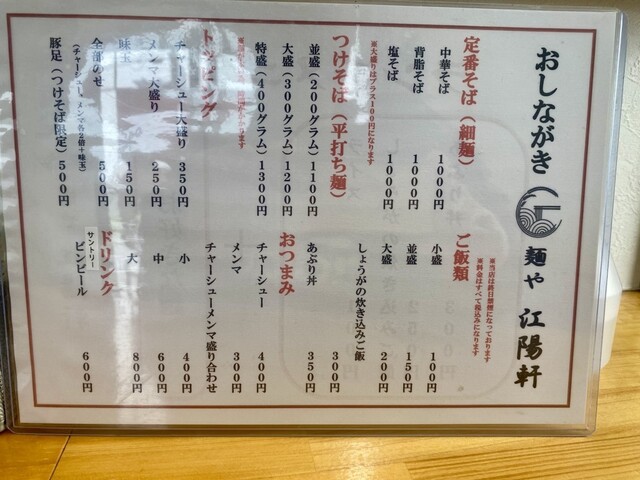 おしながき
麺や 江陽軒
※当店は終日禁煙になっております
※料金はすべて税込みになります
定番そば(細麺)
中華そば 1000円
背脂そば 1000円
塩そば 1000円
※大盛りはプラス100円になります
つけそば(平打ち麺)
並盛(200グラム) 1100円
大盛(300グラム) 1200円
特盛(400グラム) 1300円
トッピング
チャーシュー大盛り 350円
メンマ大盛り 250円
味玉 150円
全部のせ 500円
(チャーシュー、メンマ各2倍+味玉)
豚足(つけそば限定) 500円
ご飯類
小盛 100円
並盛 150円
大盛 200円
しょうがの炊き込みご飯 300円
あぶり丼 350円
おつまみ
チャーシュー 400円
メンマ 300円
チャーシューメンマ盛り合わせ
小 400円
中 600円
大 800円
ドリンク
サントリー
ビンビール 600円